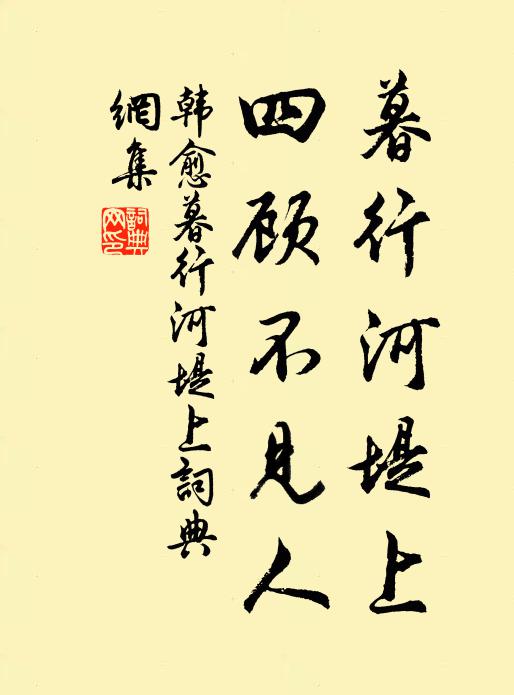 暮行河堤上
四顾不见人
韩愈暮行河堤上詞典
網集
詞典
网印